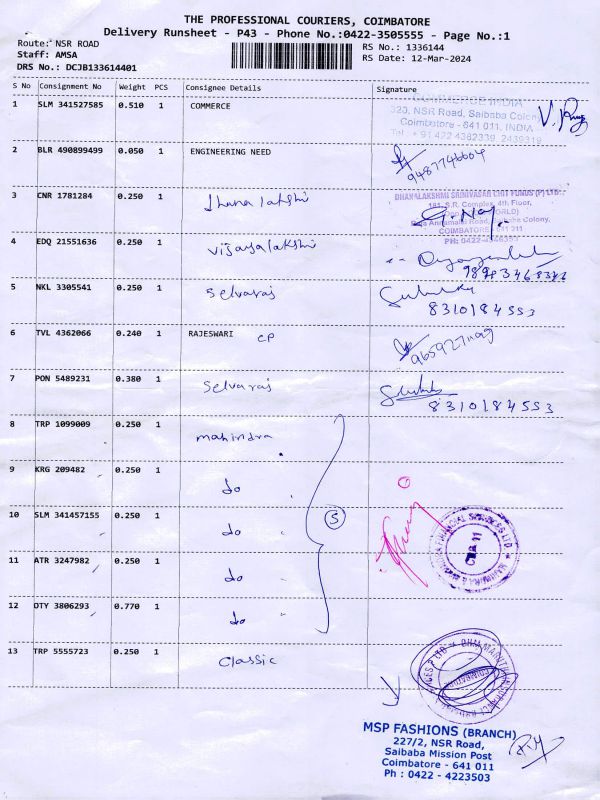 THE PROFESSIONAL COURIERS, COIMBATORE
Delivery Runsheet - P43 - Phone No.:0422-3505555 - Page No.:1
Route: NSR ROAD
RS No.: 1336144
Staff: AMSA
RS Date: 12-Mar-2024
DRS No.: DCJB133614401
S No Consignment No Weight PCS Consignee Details Signature
1 SLM 341527585 0.510 1 COMMERCE
COMMERCE INDIA
320, NSR Road, Saibaba Colony
Coimbatore - 641 011, INDIA
Tel : + 91 422 4382339, 2439319
2 BLR 490899499 0.050 1 ENGINEERING NEED
9487746604
3 CNR 1781284 0.250 1 Dhanalakshi
DHANALAKSHMI SRINIVASAR CHIT FUNDS (P) LTD
181, S.R. Complex, 4th Floor,
COIMBATORE - 641 011
PH: 0422-
4 EDQ 21551636 0.250 1 vijayalakshi
5 NKL 3305541 0.250 1 Selvaraj
8310184553
6 TVL 4362066 0.240 1 RAJESWARI CP
7 PON 5489231 0.380 1 Selvaraj
8310184553
8 TRP 1099009 0.250 1 mahindra
9 KRG 209482 0.250 1 do "
10 SLM 341457155 0.250 1 do "
5
11 ATR 3247982 0.250 1 do "
12 OTY 3806293 0.770 1 do "
13 TRP 5555723 0.250 1 Classic
MSP FASHIONS (BRANCH)
227/2, NSR Road,
Saibaba Mission Post
Coimbatore - 641 011
Ph : 0422 - 4223503